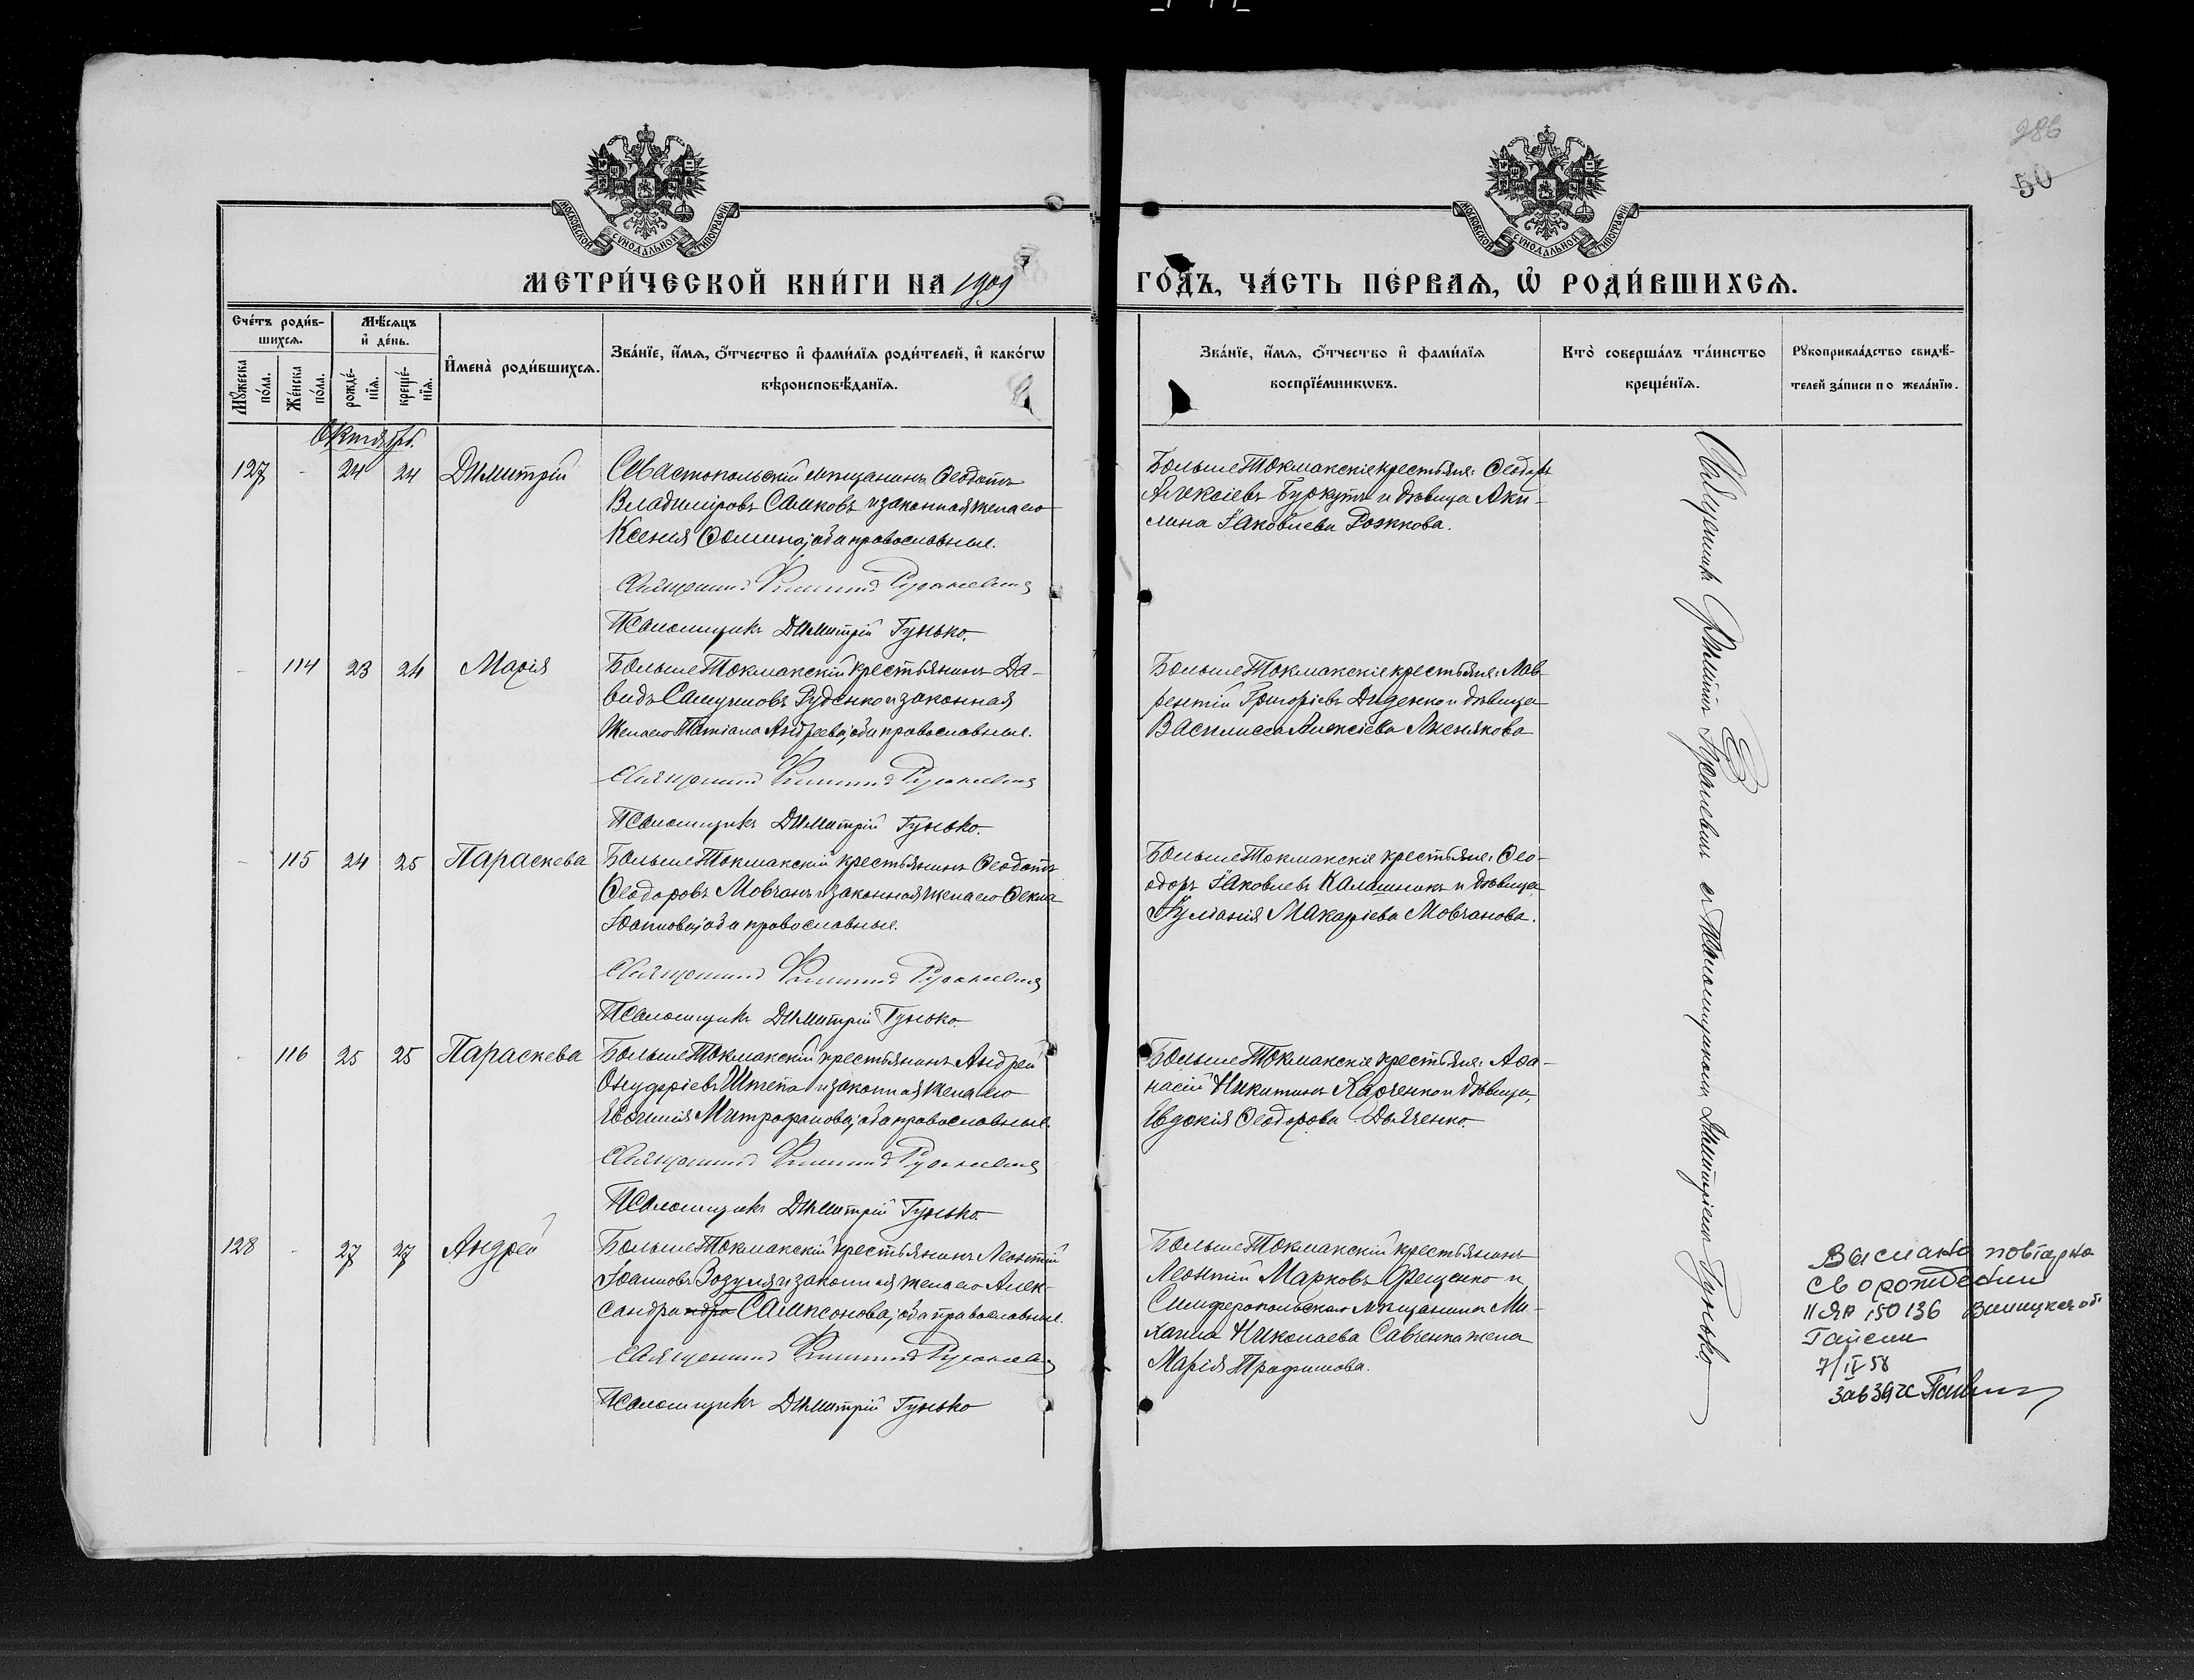 286
50
МОСКОВСКОЙ СѴНОДАЛЬНОЙ ТИПОГРАФІИ
МОСКОВСКОЙ СѴНОДАЛЬНОЙ ТИПОГРАФІИ
МЕТРИ́ЧЕСКОЙ КНИ́ГИ НА 1909
ГО́ДЪ, ЧА́СТЬ ПЕ́РВАѦ, Ѡ҆ РОДИ́ВШИХСѦ.
Сче́тъ роди́в-
шихсѧ.
Мꙋ́жеска по́ла.
Же́нска по́ла.
Мѣ́сѧцъ
и҆ де́нь.
рожде́-
нїѧ.
креще́-
нїѧ.
И҆мена̀ роди́вшихсѧ.
Зва́нїе, и҆́мѧ, ѻ҆́тчество и҆ фами́лїѧ роди́телей, и҆ како́гѡ
вѣроисповѣ́данїѧ.
Зва́нїе, и҆́мѧ, ѻ҆́тчество и҆ фами́лїѧ
воспрїе́мникѡвъ.
Кто̀ соверша́лъ та́инство
креще́нїѧ.
Рꙋкоприкла́дство свидѣ́-
телей за́писи по жела́нїю.
Октябрь.
127 - 24 24 Димитрій
Севастопольскій мѣщанинъ Ѳеодотъ
Владиміровъ Самковъ и законная жена его
Ксенія Ѳомина, оба православные.
Священникъ Филиппъ
Псаломщикъ Димитрій Гунько.
БольшеТокмакскіе крестьяне: Ѳеодоръ
Алексіевъ Буркутъ и дѣвица Аки-
лина Іаковлева Рожкова.
- 114 23 24 Марія
БольшеТокмакскій крестьянинъ Да-
видъ Самуиловъ Руденко и законная
жена его Татіана Андреева, оба православные.
Священникъ Филиппъ
Псаломщикъ Димитрій Гунько.
БольшеТокмакскіе крестьяне: Лав-
рентій Григоріевъ Диденко и дѣвица
Василисса Алексіева
- 115 24 25 Параскева
БольшеТокмакскій крестьянинъ Ѳеодотъ
Ѳеодоровъ Мовчанъ и законная жена его Ѳекла
Іоаннова, оба православные.
Священникъ Филиппъ
Псаломщикъ Димитрій Гунько.
БольшеТокмакскіе крестьяне: Ѳео-
доръ Іаковлевъ Калашникъ и дѣвица
Іуліанія Макаріева Мовчанова.
- 116 25 25 Параскева
БольшеТокмакскій крестьянинъ Андрей
Онуфріевъ Штепа и законная жена его
Евѳимія Митрофанова, оба православные.
Священникъ Филиппъ
Псаломщикъ Димитрій Гунько.
БольшеТокмакскіе крестьяне: Аѳа-
насій Никитинъ Харченко и дѣвица,
Евдокія Ѳеодорова Дьяченко.
128 - 27 27 Андрей
БольшеТокмакскій крестьянинъ Леонтій
Іоанновъ Зозуля и законная жена его Алек-
сандра Сампсонова, оба православные.
Священникъ Филиппъ
Псаломщикъ Димитрій Гунько
БольшеТокмакскій крестьянинъ
Леонтій Марковъ Фещенко и
Симферопольскаго мѣщанина Ми-
хаила Николаева Савченка жена
Марія Трофимова.
Священникъ Филиппъ съ псаломщикомъ Димитріемъ Гунько
Выслано повторно
св о рождении
II ЯР 150136 Винницкая об
Гайсин
7/IV 58
Зав ЗАГС